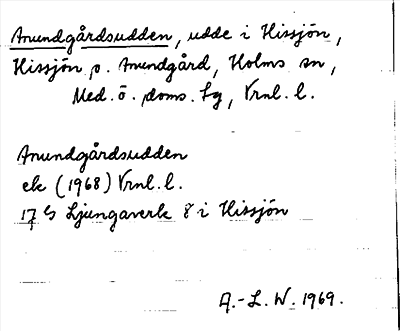 Anundgårdsudden, udde i Hissjön,
Hissjön p. Anundgård, Holms sn,
Med. ö. doms. tg, Vrnl. l.
Anundgårdsudden
ek (1968) Vrnl. l.
17 Ljungaverk 8 i Hissjön
A.-L. W. 1969.